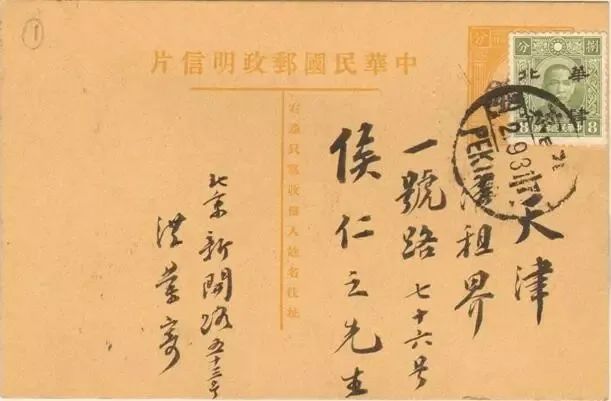 ①
中華民國郵政明信片
分
捌分
華北
8 8
PEKIN
天津
租界
一號路七十六号
侯仁之先生
右邊只寫收信人姓名住址
北京新開路五十三号
洪業寄